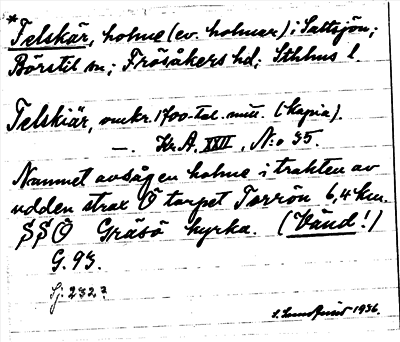 * Telskär, holme (ev. holmar) i Saltsjön;
Börstil sn; Frösåkers hd; Sthlms l.
Telskiär, omkr. 1700-tal. mitt. (kopia).
—. Kr.A. XXII, N:o 35.
Namnet avsåg en holme i trakten av
udden strax Ö torpet Torrön 6,4 km.
SSÖ Gräsö kyrka. (Vänd!)
G. 93.
Sj. 232?
S. Lundqvist 1936.